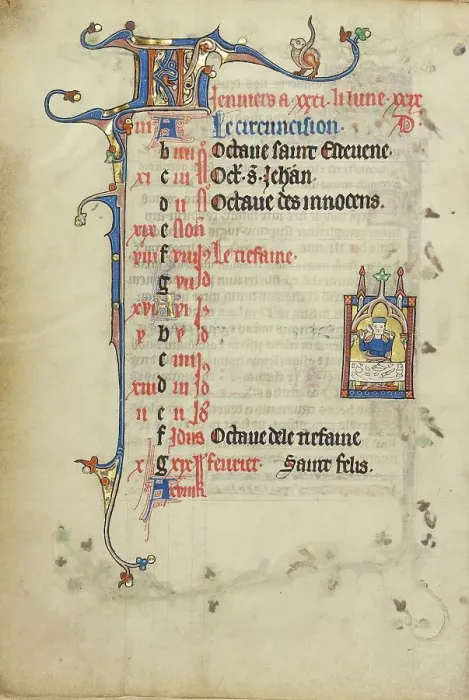 Jenuiers a xxxi li lune xxx
iii A Le circuncision. D
b iiii Octaue saint Esteuene.
xi c iii Oct. s. Jehan.
d ii Octaue des innocens.
xix e Non
viii f viii Le tiefaine.
g vii id
xvi A vi
v b
c iiii
xiii d iii id
ii e ii
f Idus Octaue dele tiefaine
x g xix feurier. Saint felis.
A xviii k